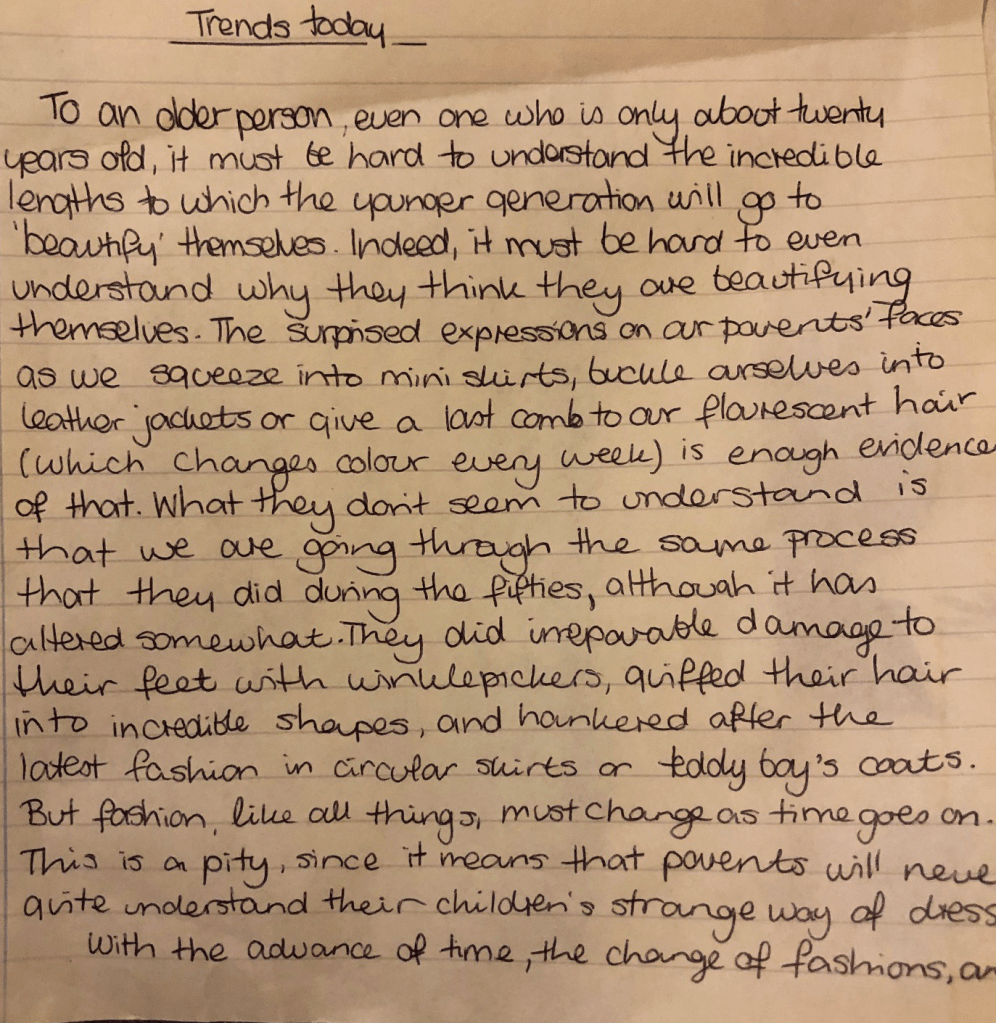 Trends today
To an older person, even one who is only about twenty
years old, it must be hard to understand the incredible
lengths to which the younger generation will go to
'beautify' themselves. Indeed, it must be hard to even
understand why they think they are beautifying
themselves. The surprised expressions on our parents' faces
as we squeeze into mini skirts, buckle ourselves into
leather jackets or give a last comb to our flourescent hair
(which changes colour every week) is enough evidence
of that. What they don't seem to understand is
that we are going through the same process
that they did during the fifties, although it has
altered somewhat. They did irreparable damage to
their feet with winklepickers, quiffed their hair
into incredible shapes, and hankered after the
latest fashion in circular skirts or teddy boy's coats.
But fashion, like all things, must change as time goes on.
This is a pity, since it means that parents will neve
quite understand their children's strange way of dress
With the advance of time, the change of fashions, an